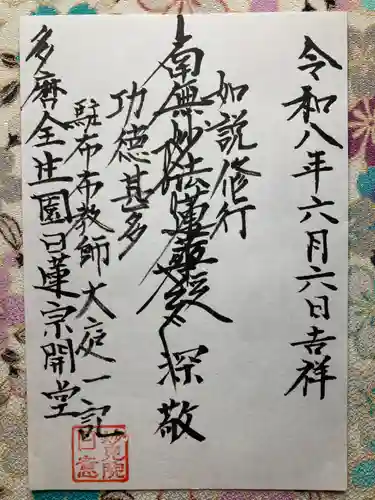 令和八年六月六日吉祥
如説修行
南無妙法蓮華経
深敬
功徳甚多
駐在布教師 大庭一記
多磨全生園日蓮宗開堂